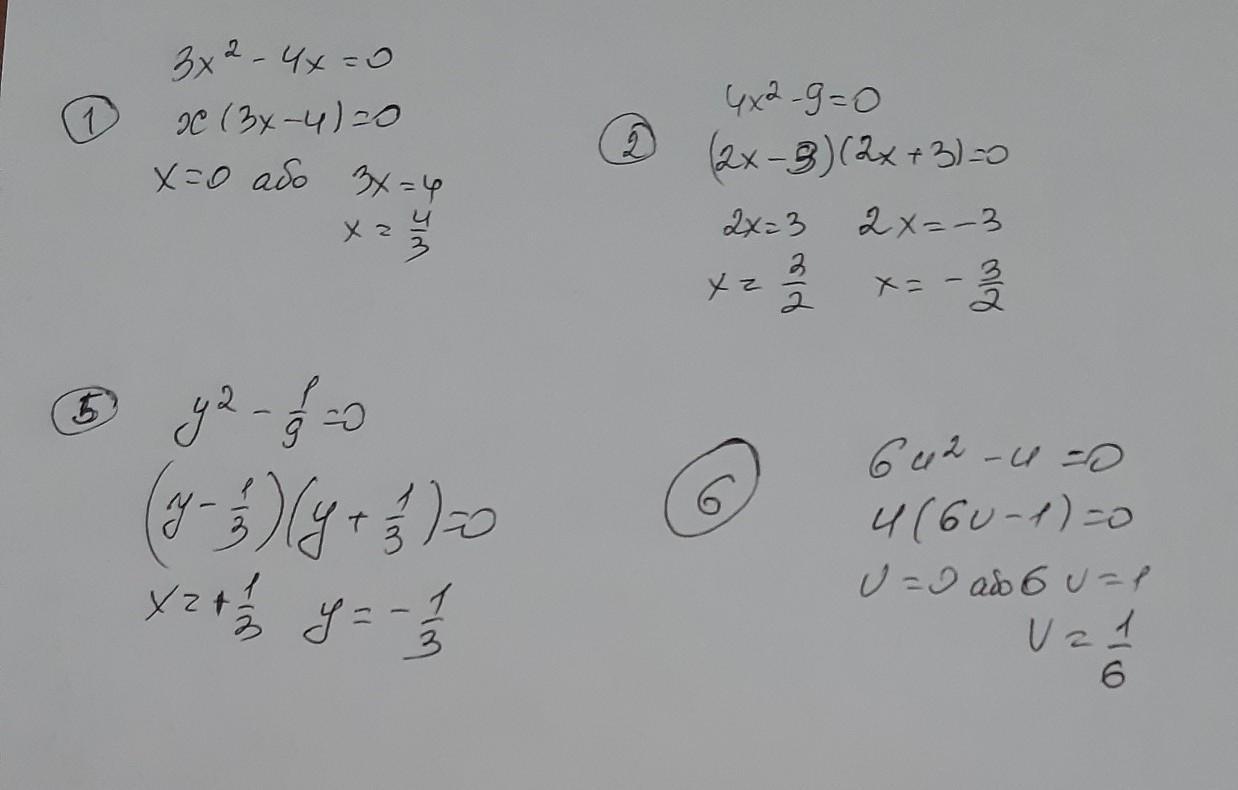 ①
3x² - 4x = 0
x(3x-4)=0
x=0 або 3x=4
x = 4/3
②
4x² - 9=0
(2x-3)(2x+3)=0
2x=3 2x=-3
x = 3/2 x = - 3/2
⑤
y² - 1/9 =0
(y - 1/3)(y + 1/3)=0
x = + 1/3 y = - 1/3
⑥
6u² - u =0
u(6u-1)=0
u=0 або 6u=1
u = 1/6